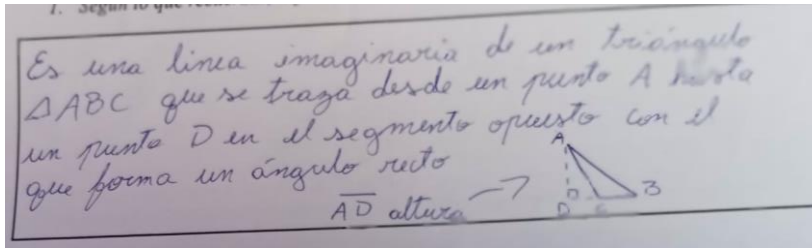 1. Según lo que
Es una linea imaginaria de un triángulo
△ABC que se traza desde un punto A hasta
un punto D en el segmento opuesto con el
que forma un ángulo recto
A
B
D C
A̅D̅ altura